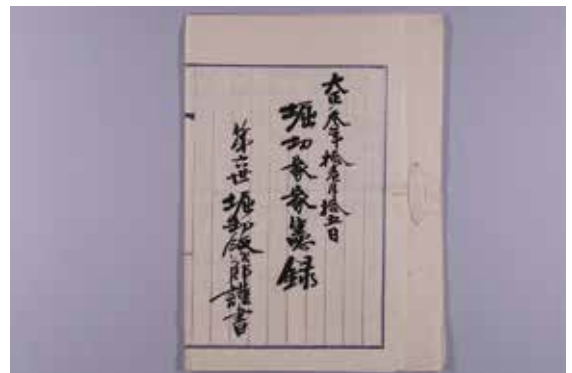 大正参年拾壱月拾五日
堀切家家憲録
第六世 堀切良郎謹書